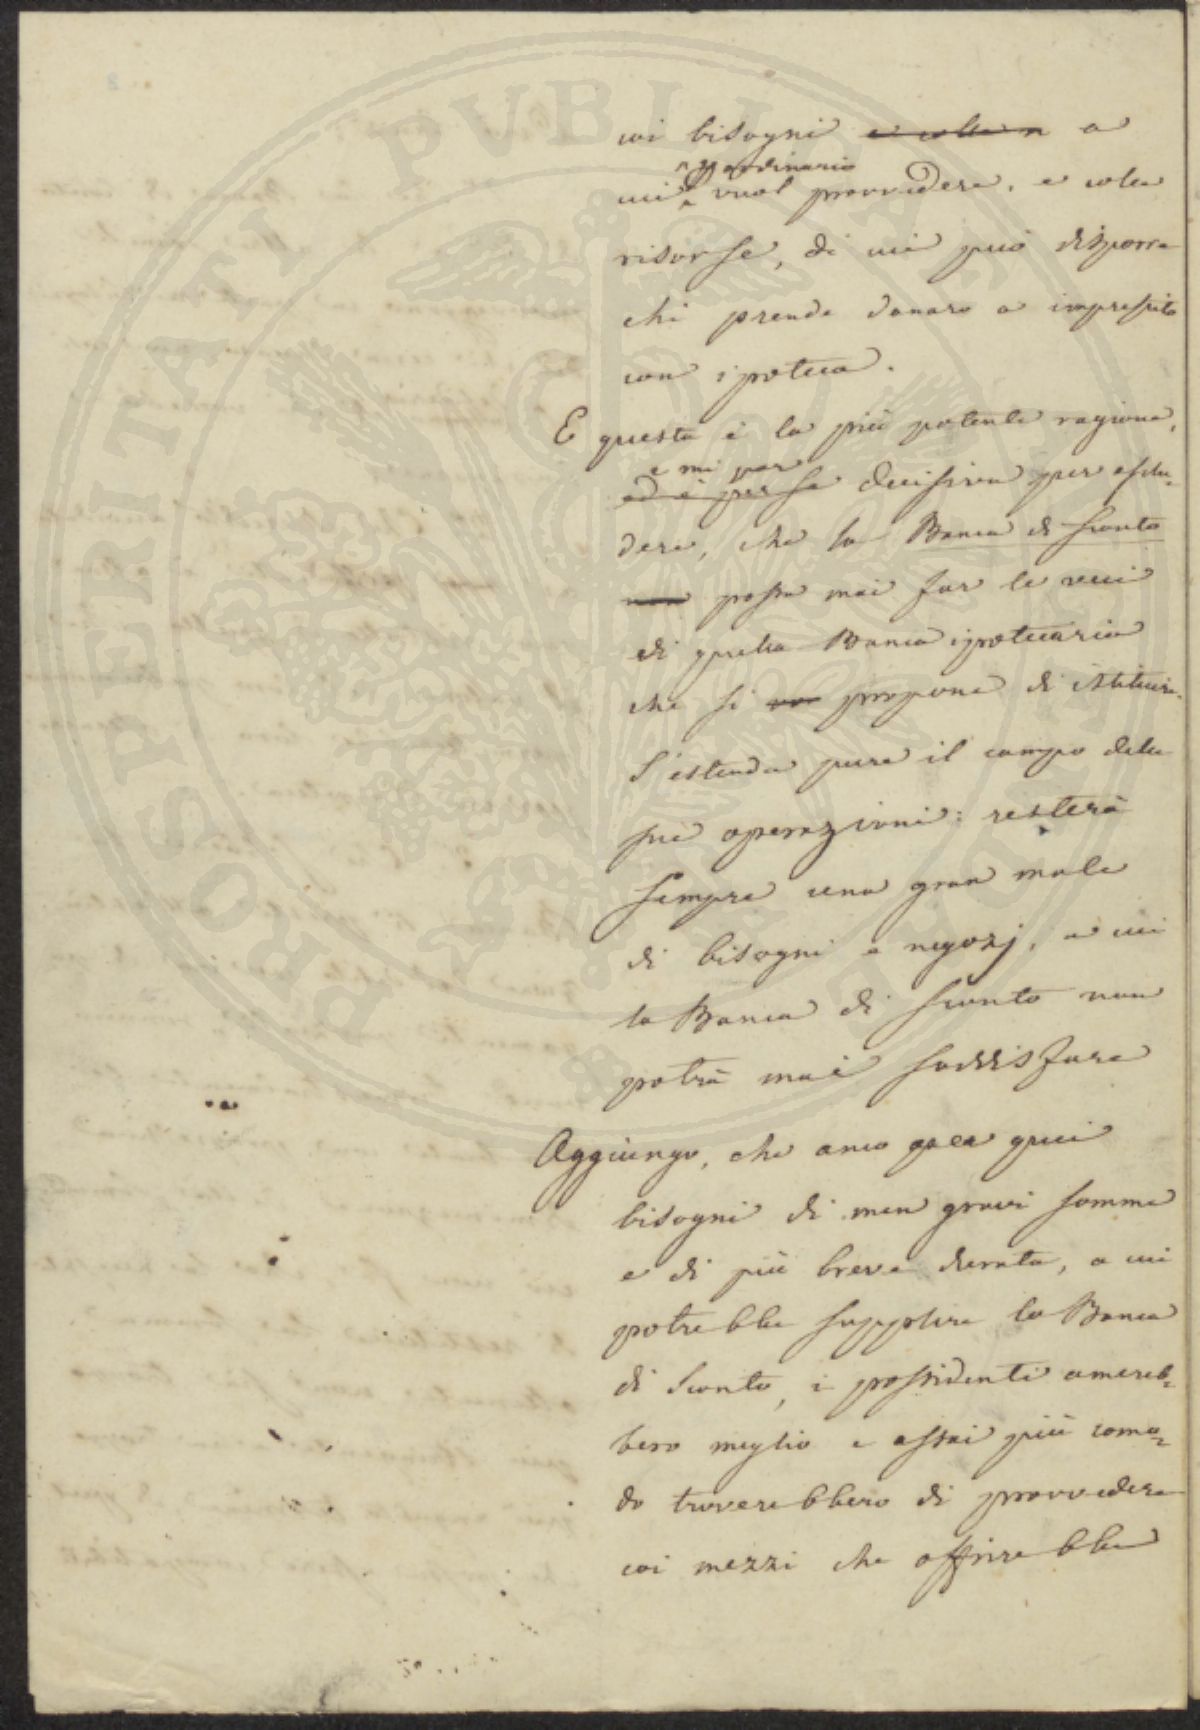 PROSPERITATI PVBLICAE
coi bisogni a
cui ordinario vuol provvedere, e colle
risorse, di cui può disporre
chi prende danaro a imprestito
con ipoteca.
E questa è la più potente ragione,
e mi par
ed è per se decisiva per esclu-
dere, che la Banca di Sconto
non possa mai far le veci
di quella Banca ipotecaria
che si propone di istituire.
S'estenda pure il campo delle
sue operazioni: resterà
sempre una gran mole
di bisogni e negozj, a cui
la Banca di Sconto non
potrà mai soddisfare
Aggiungo, che anco per quei
bisogni di men gravi somme
e di più breve durata, a cui
potrebbe supplire la Banca
di Sconto, i possidenti amereb-
bero meglio e assai più como-
do troverebbero di provvedere
coi mezzi che offrirebbe